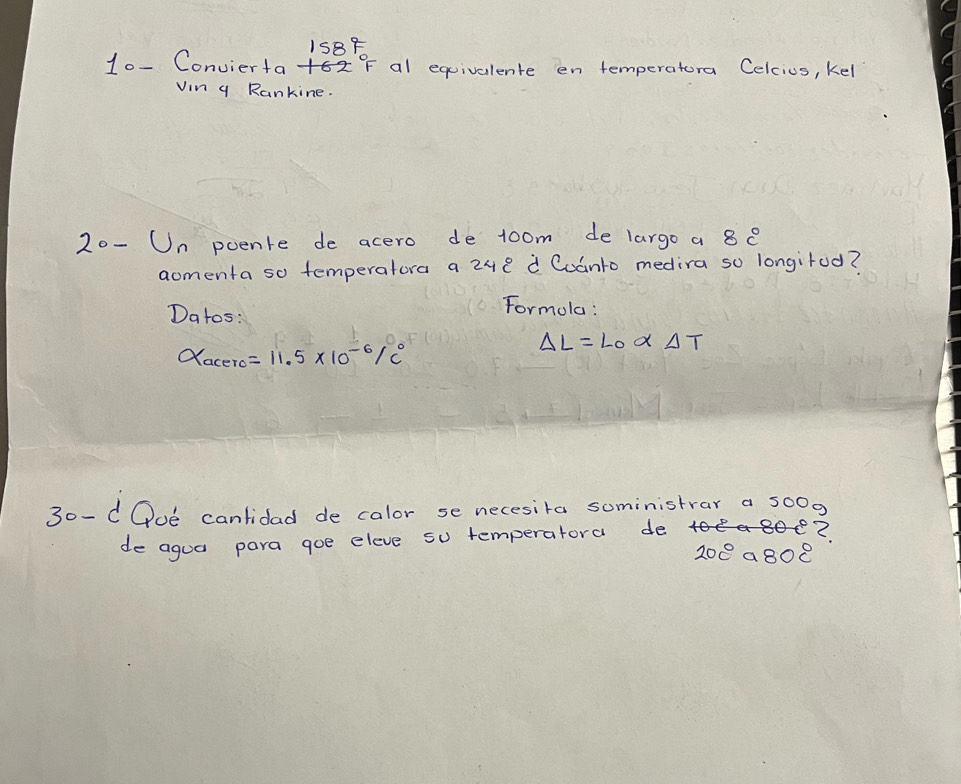 158°F
10- Convierta 162 °F al equivalente en temperatura Celcius, Kel
vin y Rankine.
20- Un puente de acero de 100m de largo a 8°C
aumenta su temperatura a 24°C ¿Cuánto medira su longitud?
Datos:
Formula:
αacero= 11.5 x 10⁻⁶/°C
ΔL = Lo α ΔT
30- ¿Qué cantidad de calor se necesita suministrar a 500g
de agua para que eleve su temperatura de 10°C a 80°C?
20°C a 80°C